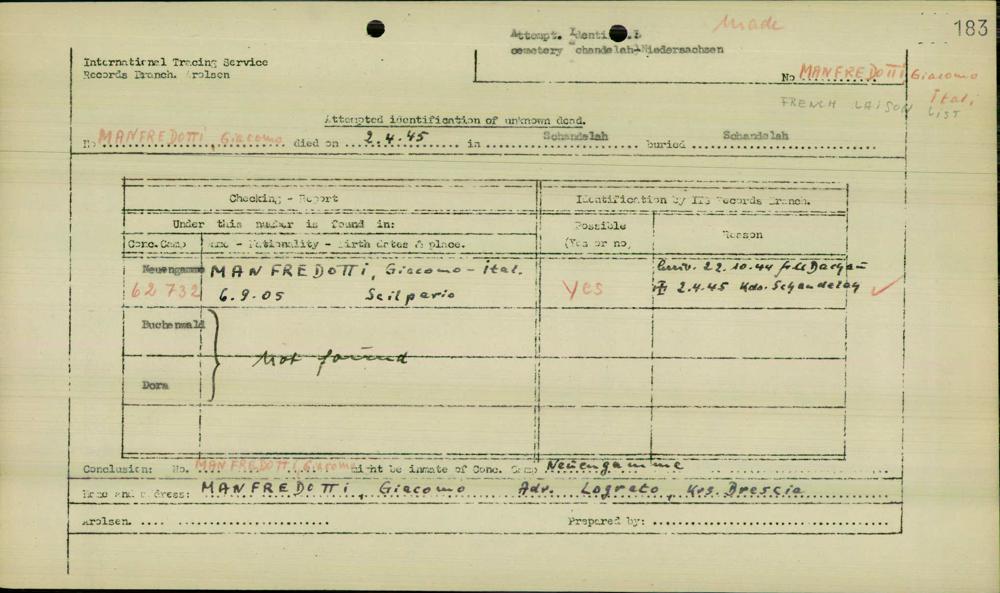 made
183
Attempt. Identi
cemetery Schandelah-Niedersachsen
International Tracing Service
Records Branch. Arolsen
No MANFREDOTTI Giacomo
FRENCH LAISON Itali
LIST
Attempted identification of unknown dead.
No MANFREDOTTI, Giacomo died on 2.4.45 in Schandelah buried Schandelah
Checking - Report
Identification by ITS Records Branch.
Under this number is found in:
Possible
(Yes or no)
Reason
Conc.Camp
Name - Nationality - Birth dates & place.
Neuengamme MANFREDOTTI, Giacomo - Ital. 22.10.44 Dachau
62 732 6.9.05 Scilpario yes 2.4.45 Kdo. Schandelah
Buchenwald
Not found
Dora
Conclusion: No. MANFREDOTTI, Giacomo might be inmate of Conc. Camp Neuengamme
Name and address: MANFREDOTTI, Giacomo Adr. Lograto, Krs. Brescia
Arolsen.
Prepared by: